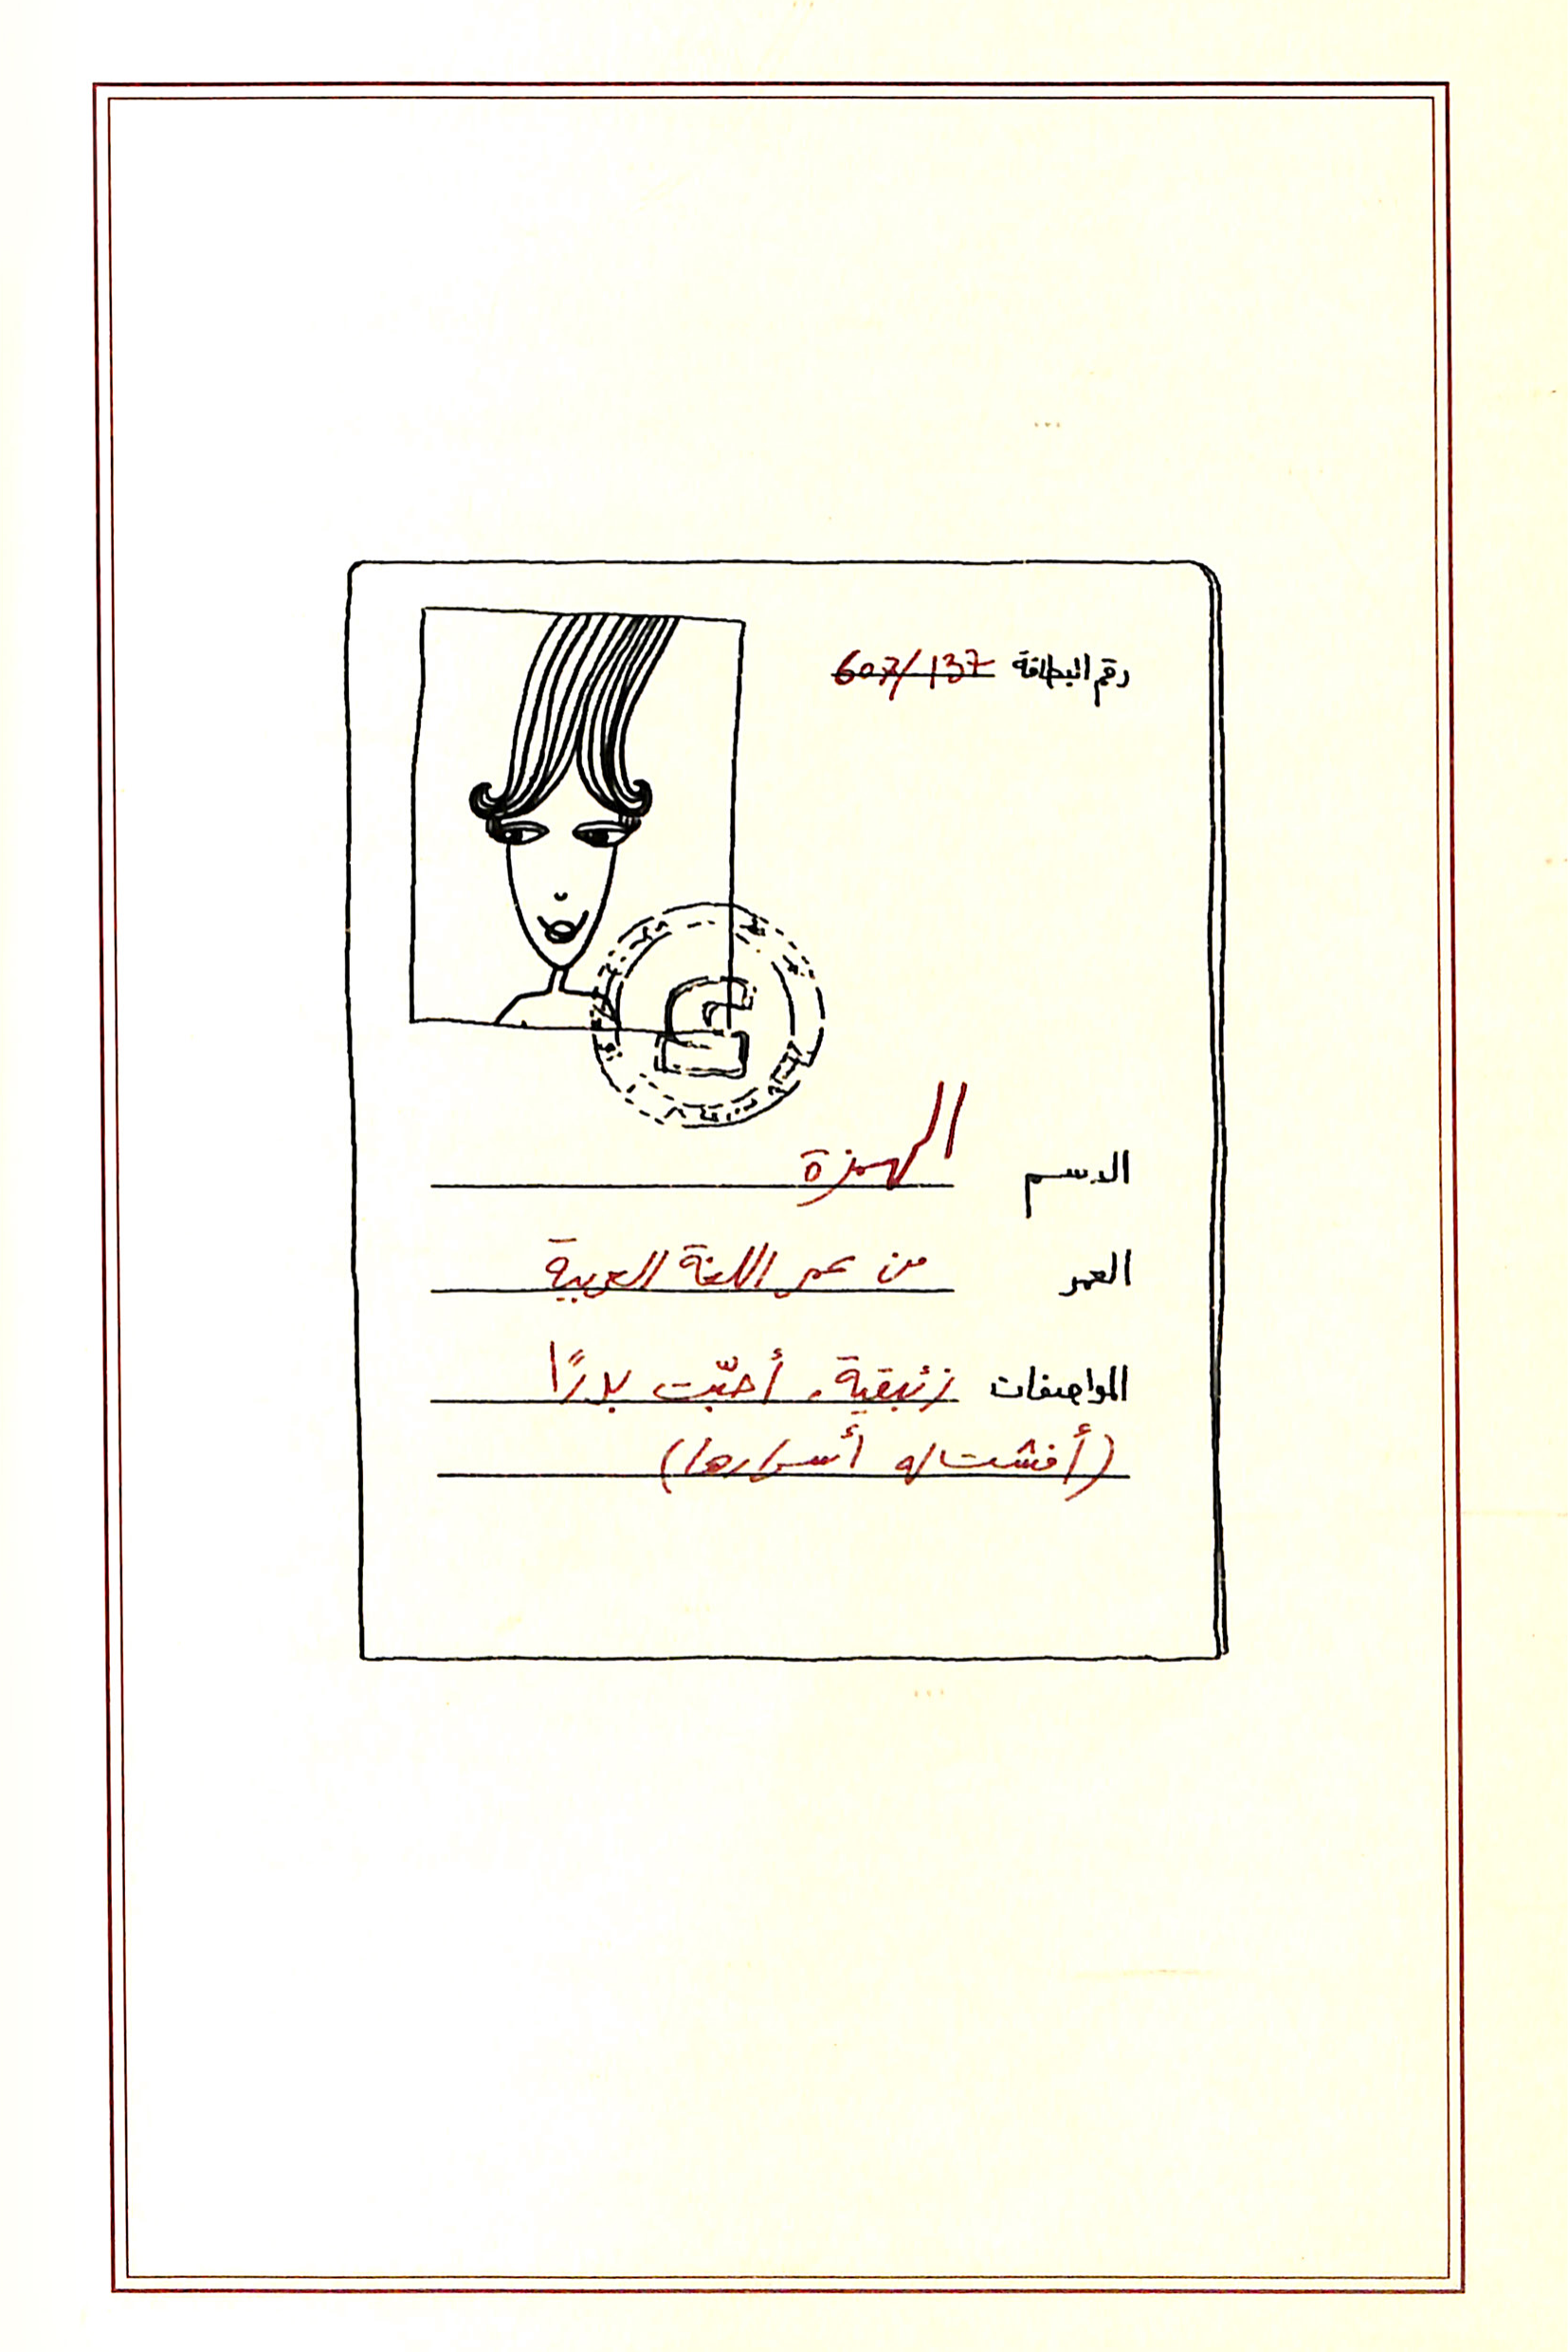 رقم البطاقة 607/137
الاسم الهمزة
العمر من عمر اللغة العربية
المواصفات زئبقية. أحبّت بدرًا
(أفشت له أسرارها)